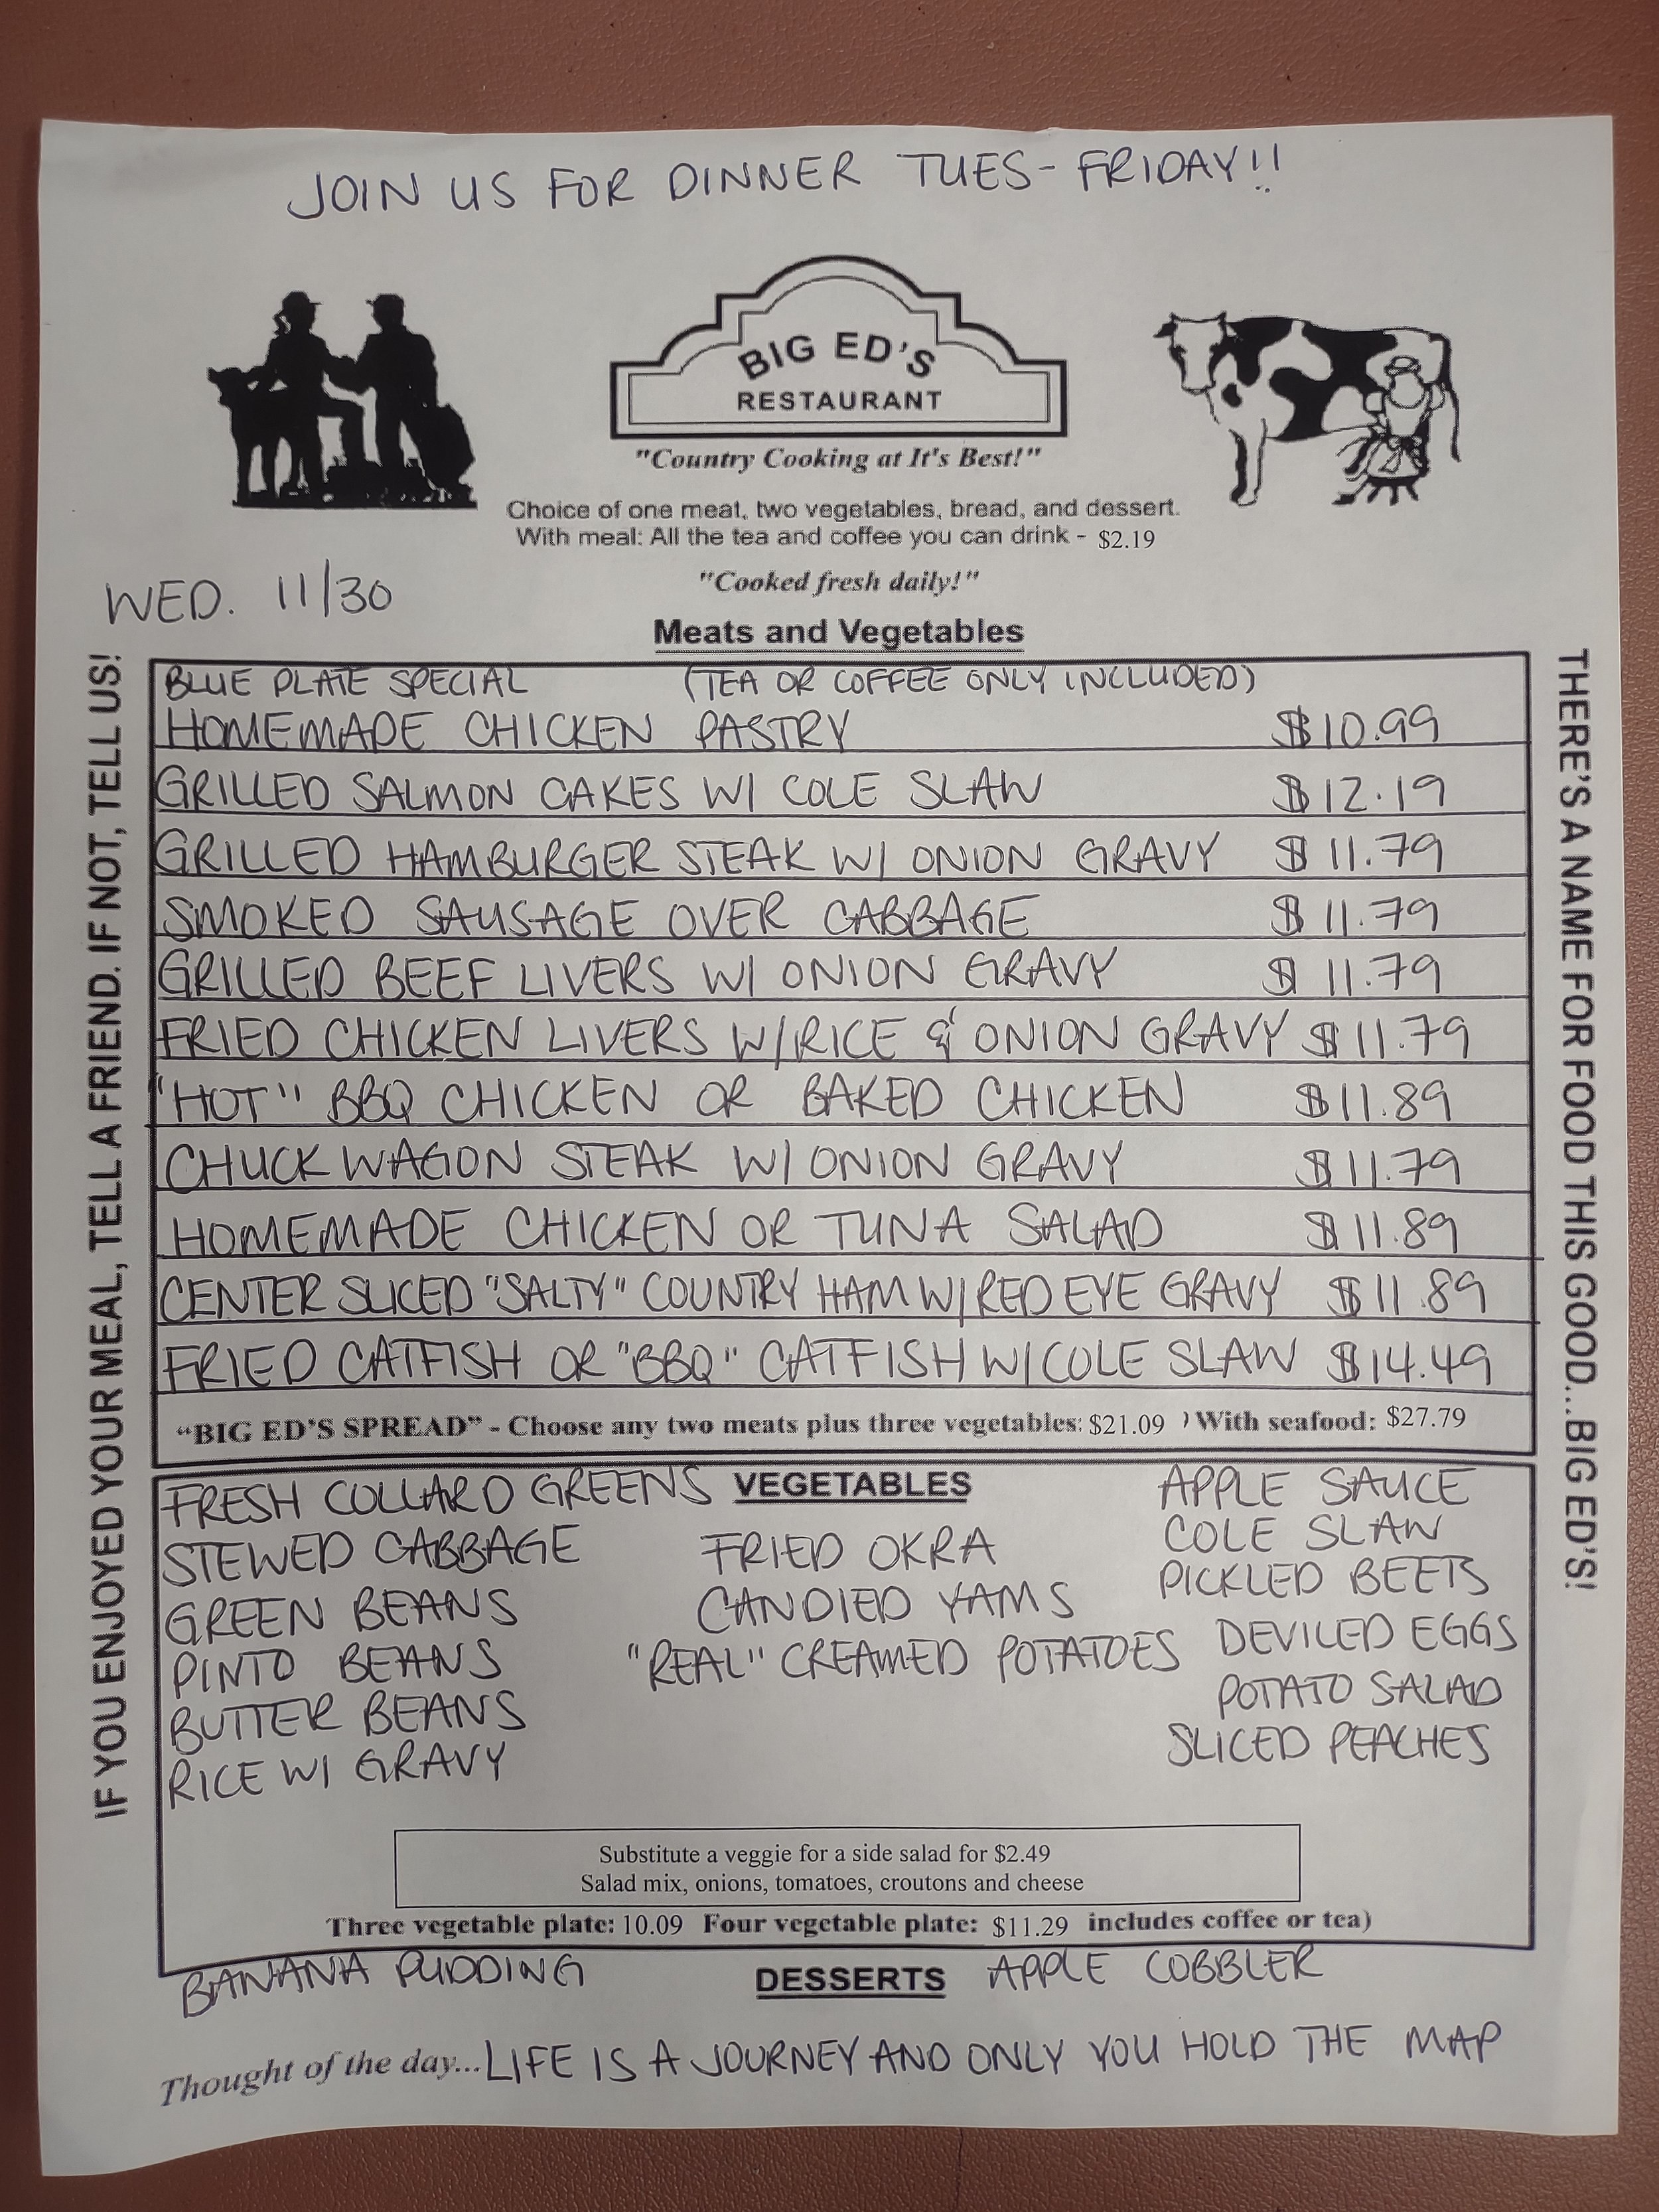 JOIN US FOR DINNER TUES-FRIDAY!!
BIG ED'S
RESTAURANT
"Country Cooking at It's Best!"
Choice of one meat, two vegetables, bread, and dessert.
With meal: All the tea and coffee you can drink - $2.19
"Cooked fresh daily!"
WED. 11/30
Meats and Vegetables
IF YOU ENJOYED YOUR MEAL, TELL A FRIEND. IF NOT, TELL US!
BLUE PLATE SPECIAL (TEA OR COFFEE ONLY INCLUDED)
HOMEMADE CHICKEN PASTRY $10.99
GRILLED SALMON CAKES W/ COLE SLAW $12.19
GRILLED HAMBURGER STEAK W/ ONION GRAVY $11.79
SMOKED SAUSAGE OVER CABBAGE $11.79
GRILLED BEEF LIVERS W/ ONION GRAVY $11.79
FRIED CHICKEN LIVERS W/RICE & ONION GRAVY $11.79
"HOT" BBQ CHICKEN OR BAKED CHICKEN $11.89
CHUCK WAGON STEAK W/ ONION GRAVY $11.79
HOMEMADE CHICKEN OR TUNA SALAD $11.89
CENTER SLICED "SALTY" COUNTRY HAM W/RED EYE GRAVY $11.89
FRIED CATFISH OR "BBQ" CATFISH W/COLE SLAW $14.49
"BIG ED'S SPREAD" - Choose any two meats plus three vegetables: $21.09 ) With seafood: $27.79
THERE'S A NAME FOR FOOD THIS GOOD...BIG ED'S!
VEGETABLES
FRESH COLLARD GREENS
STEWED CABBAGE
GREEN BEANS
PINTO BEANS
BUTTER BEANS
RICE W/ GRAVY
FRIED OKRA
CANDIED YAMS
"REAL" CREAMED POTATOES
APPLE SAUCE
COLE SLAW
PICKLED BEETS
DEVILED EGGS
POTATO SALAD
SLICED PEACHES
Substitute a veggie for a side salad for $2.49
Salad mix, onions, tomatoes, croutons and cheese
Three vegetable plate: 10.09 Four vegetable plate: $11.29 includes coffee or tea)
BANANA PUDDING DESSERTS APPLE COBBLER
Thought of the day...LIFE IS A JOURNEY AND ONLY YOU HOLD THE MAP